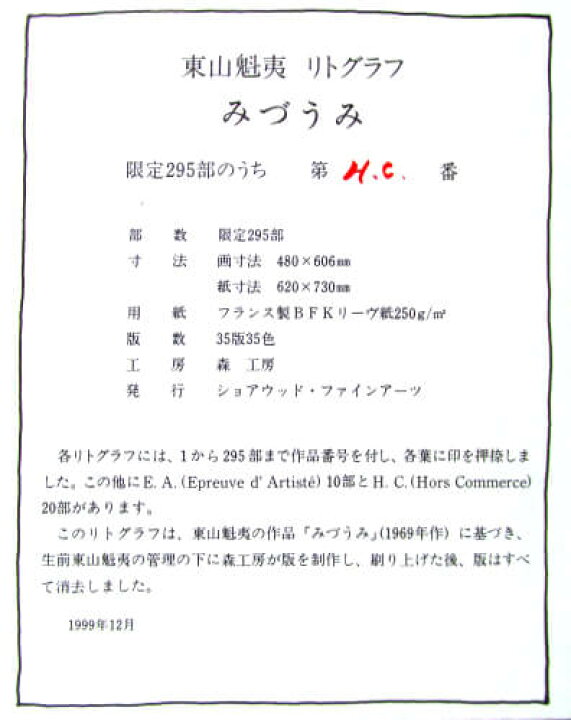 東山魁夷 リトグラフ
みづうみ
限定295部のうち 第 H.C. 番
部数 限定295部
寸法 画寸法 480×606㎜
紙寸法 620×730㎜
用紙 フランス製BFKリーヴ紙250g/㎡
版数 35版35色
工房 森 工房
発行 ショアウッド・ファインアーツ
各リトグラフには、1から295部まで作品番号を付し、各葉に印を押捺しま
した。この他にE. A. (Epreuve d' Artisté) 10部とH. C. (Hors Commerce)
20部があります。
このリトグラフは、東山魁夷の作品「みづうみ」(1969年作)に基づき、
生前東山魁夷の管理の下に森工房が版を制作し、刷り上げた後、版はすべ
て消去しました。
1999年12月